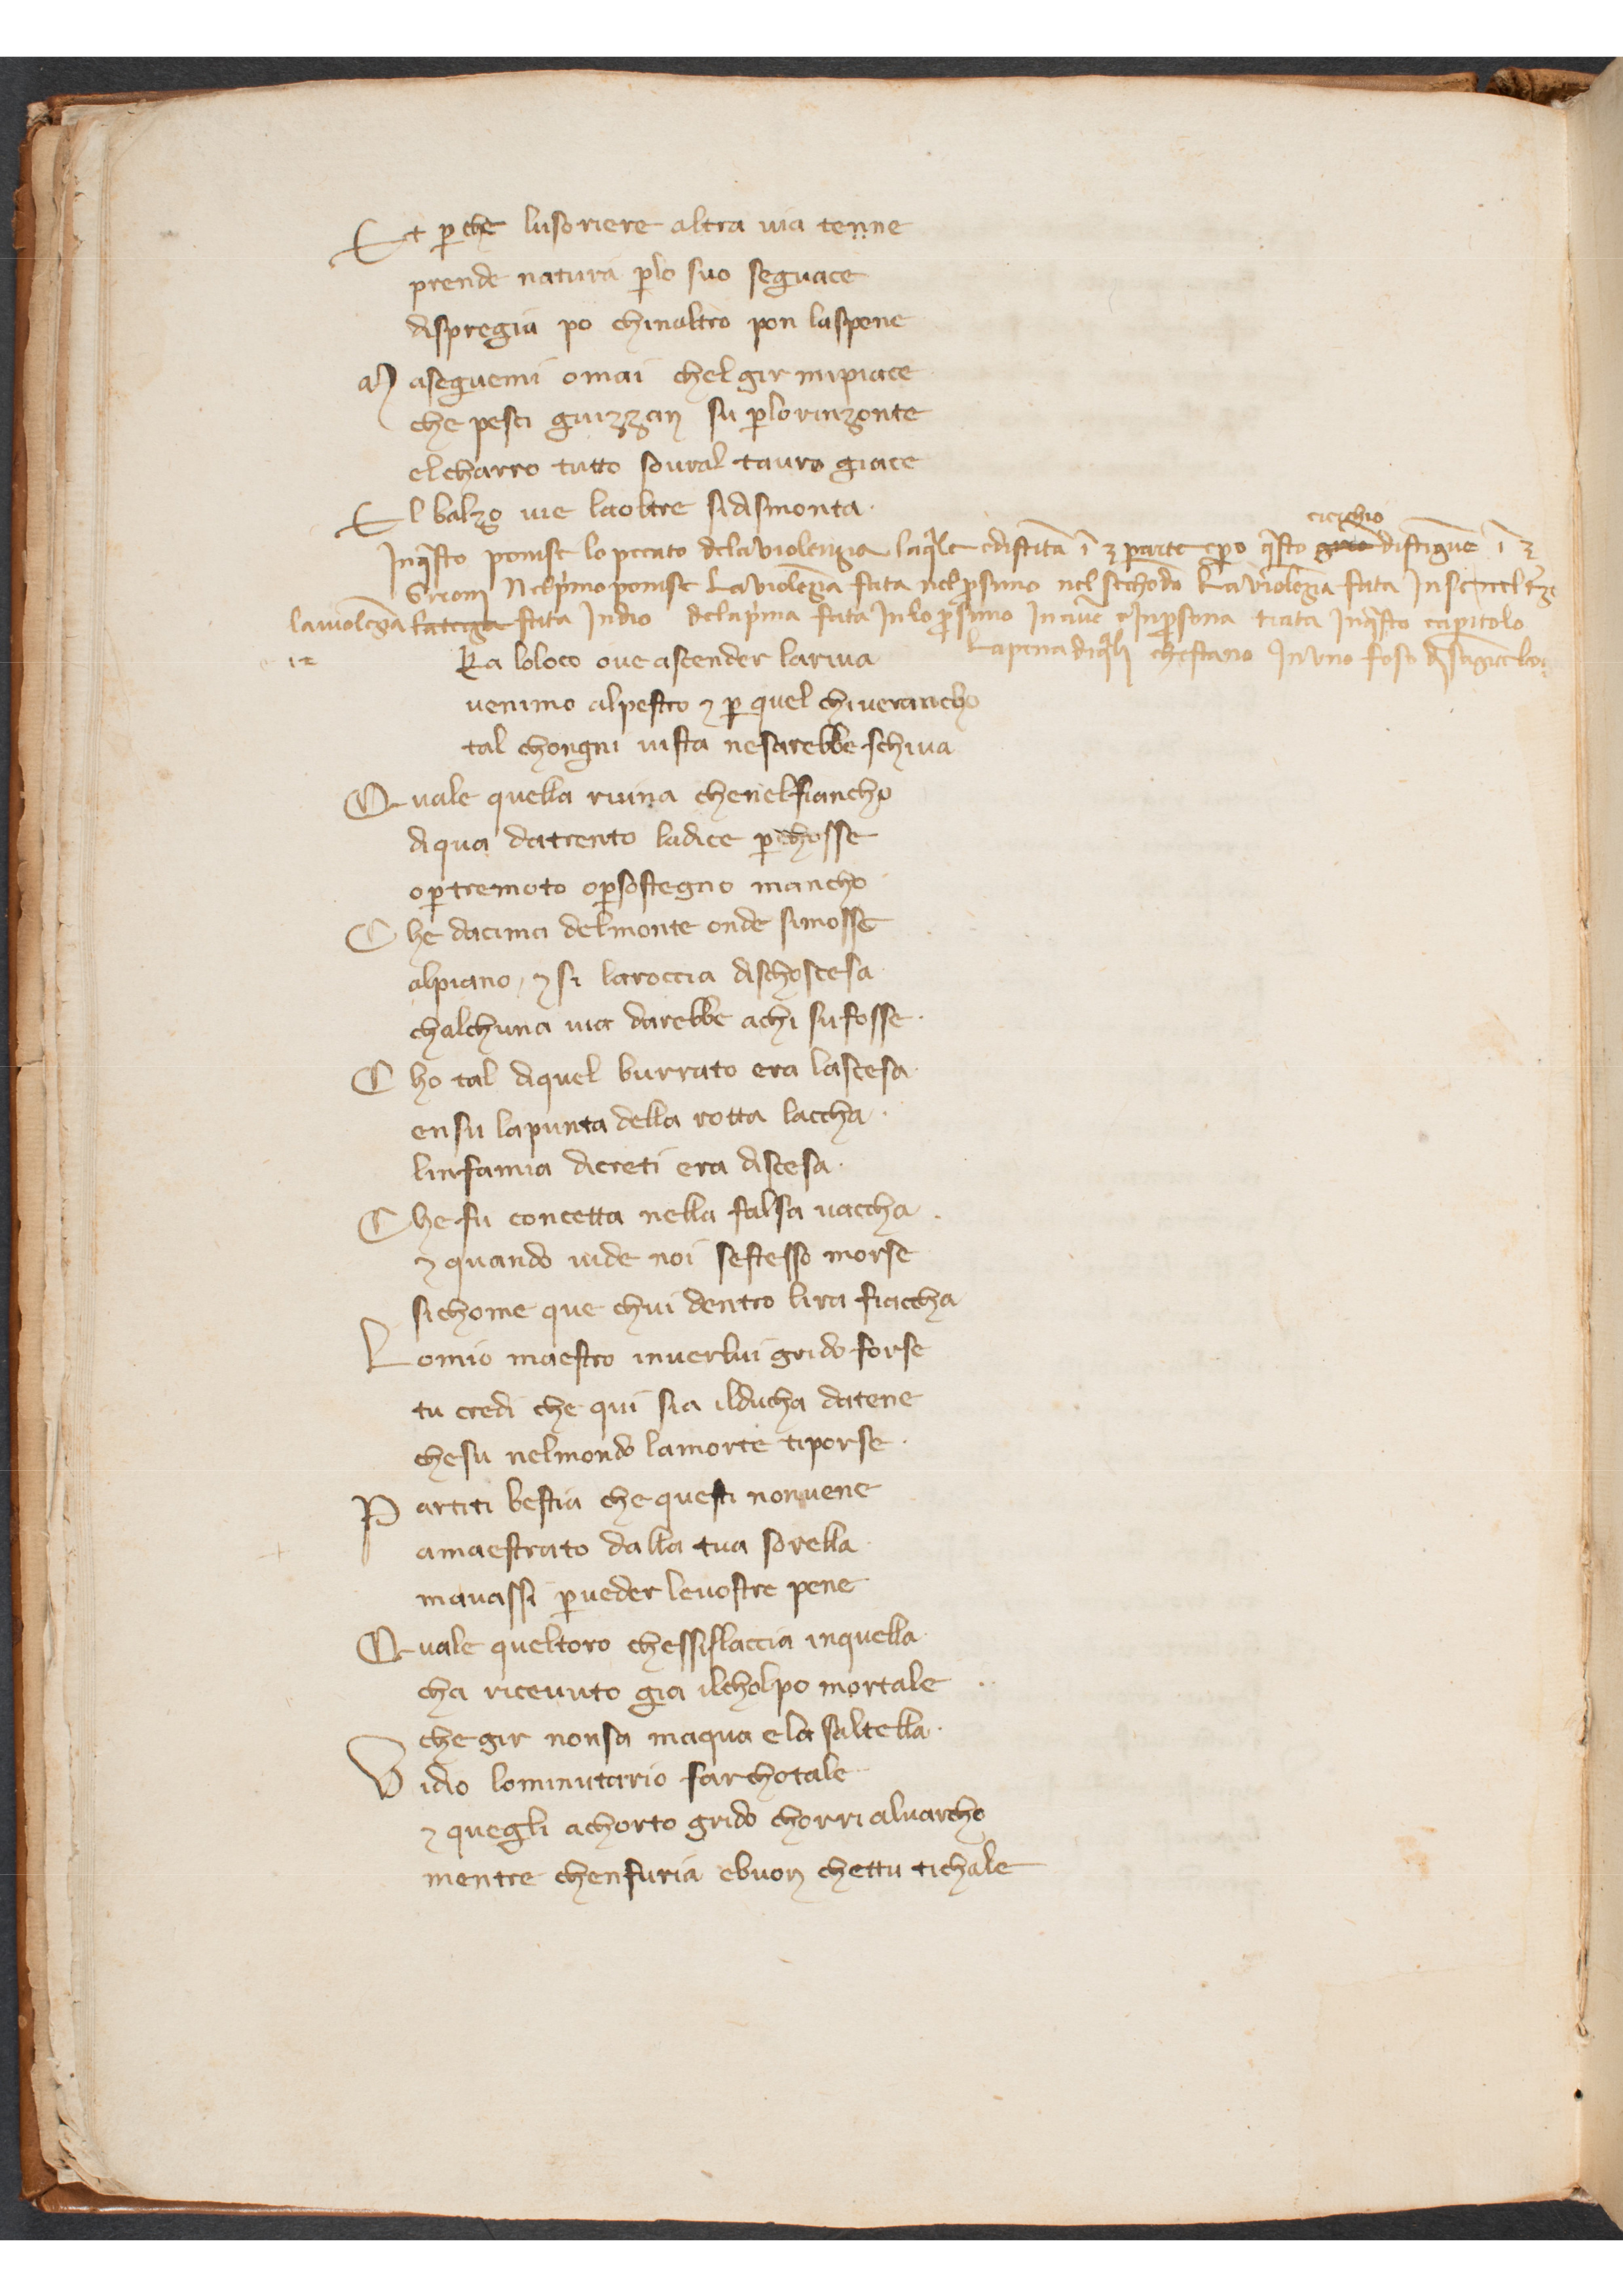 Et ꝑche lusoriere altra uia tenne
prende natura ꝑlo suo seguace
dispregia po chinaltro pon laspene
Maseguemi omai chel gir mipiace
che pesci guizzan su ꝑlorinzonte
elcharro tutto soural tauro giace
El balzo uie laoltre sidismonta.
cierchio
Inq̄sto ponise lo pecato dela violenzia laq̄le edistīta ī 3 parte ꝑo q̄sto giro distīgue ī 3
Nelp̄imo ponise La violēza fata nel ꝓsimo nel sechōdo La violēza fata In se
laviolēza fata Indio dela p̄ima fata Inlo ꝓsimo e Inꝑsona trata Inq̄sto capitolo
La pena diq̄li chestano In vno foso di
12
Ra loloco oue ascender lariua
uenimo alpestro ⁊ ꝑ quel chiverancho
tal chongni uista nesarebbe schiua
Quale quella ruina chenelfiancho
diqua datrento ladice ꝑchosse
oꝑtremoto oꝑsostegno mancho
Che dacima delmonte onde simosse
alpiano, ⁊ si laroccia dischoscesa
chalchuna uia darebbe achi sufosse.
Cho tal diquel burrato era lascesa
ensu lapunta della rotta laccha.
linfamia dicreti era distesa.
Che fu concetta nella falsa uaccha.
⁊ quando uide noi sestesso morse
sichome que chui dentro lira fiaccha
Lomio maestro inuerlui grido forse
tu credi che qui sia ilducha datene
chesu nelmondo lamorte tiporse.
Partiti bestia che questi nonuene
amaestrato dalla tua sorella
mauassi ꝑueder leuostre pene
Quale queltoro chessislaccia inquella
cha riceuuto gia ilcholpo mortale
che gir nonsa maqua ela saltella.
Vidio lominutario farchotale
⁊ quegli achorto grido chorri aluarcho
mentre chenfuria ebuon chettu tichale